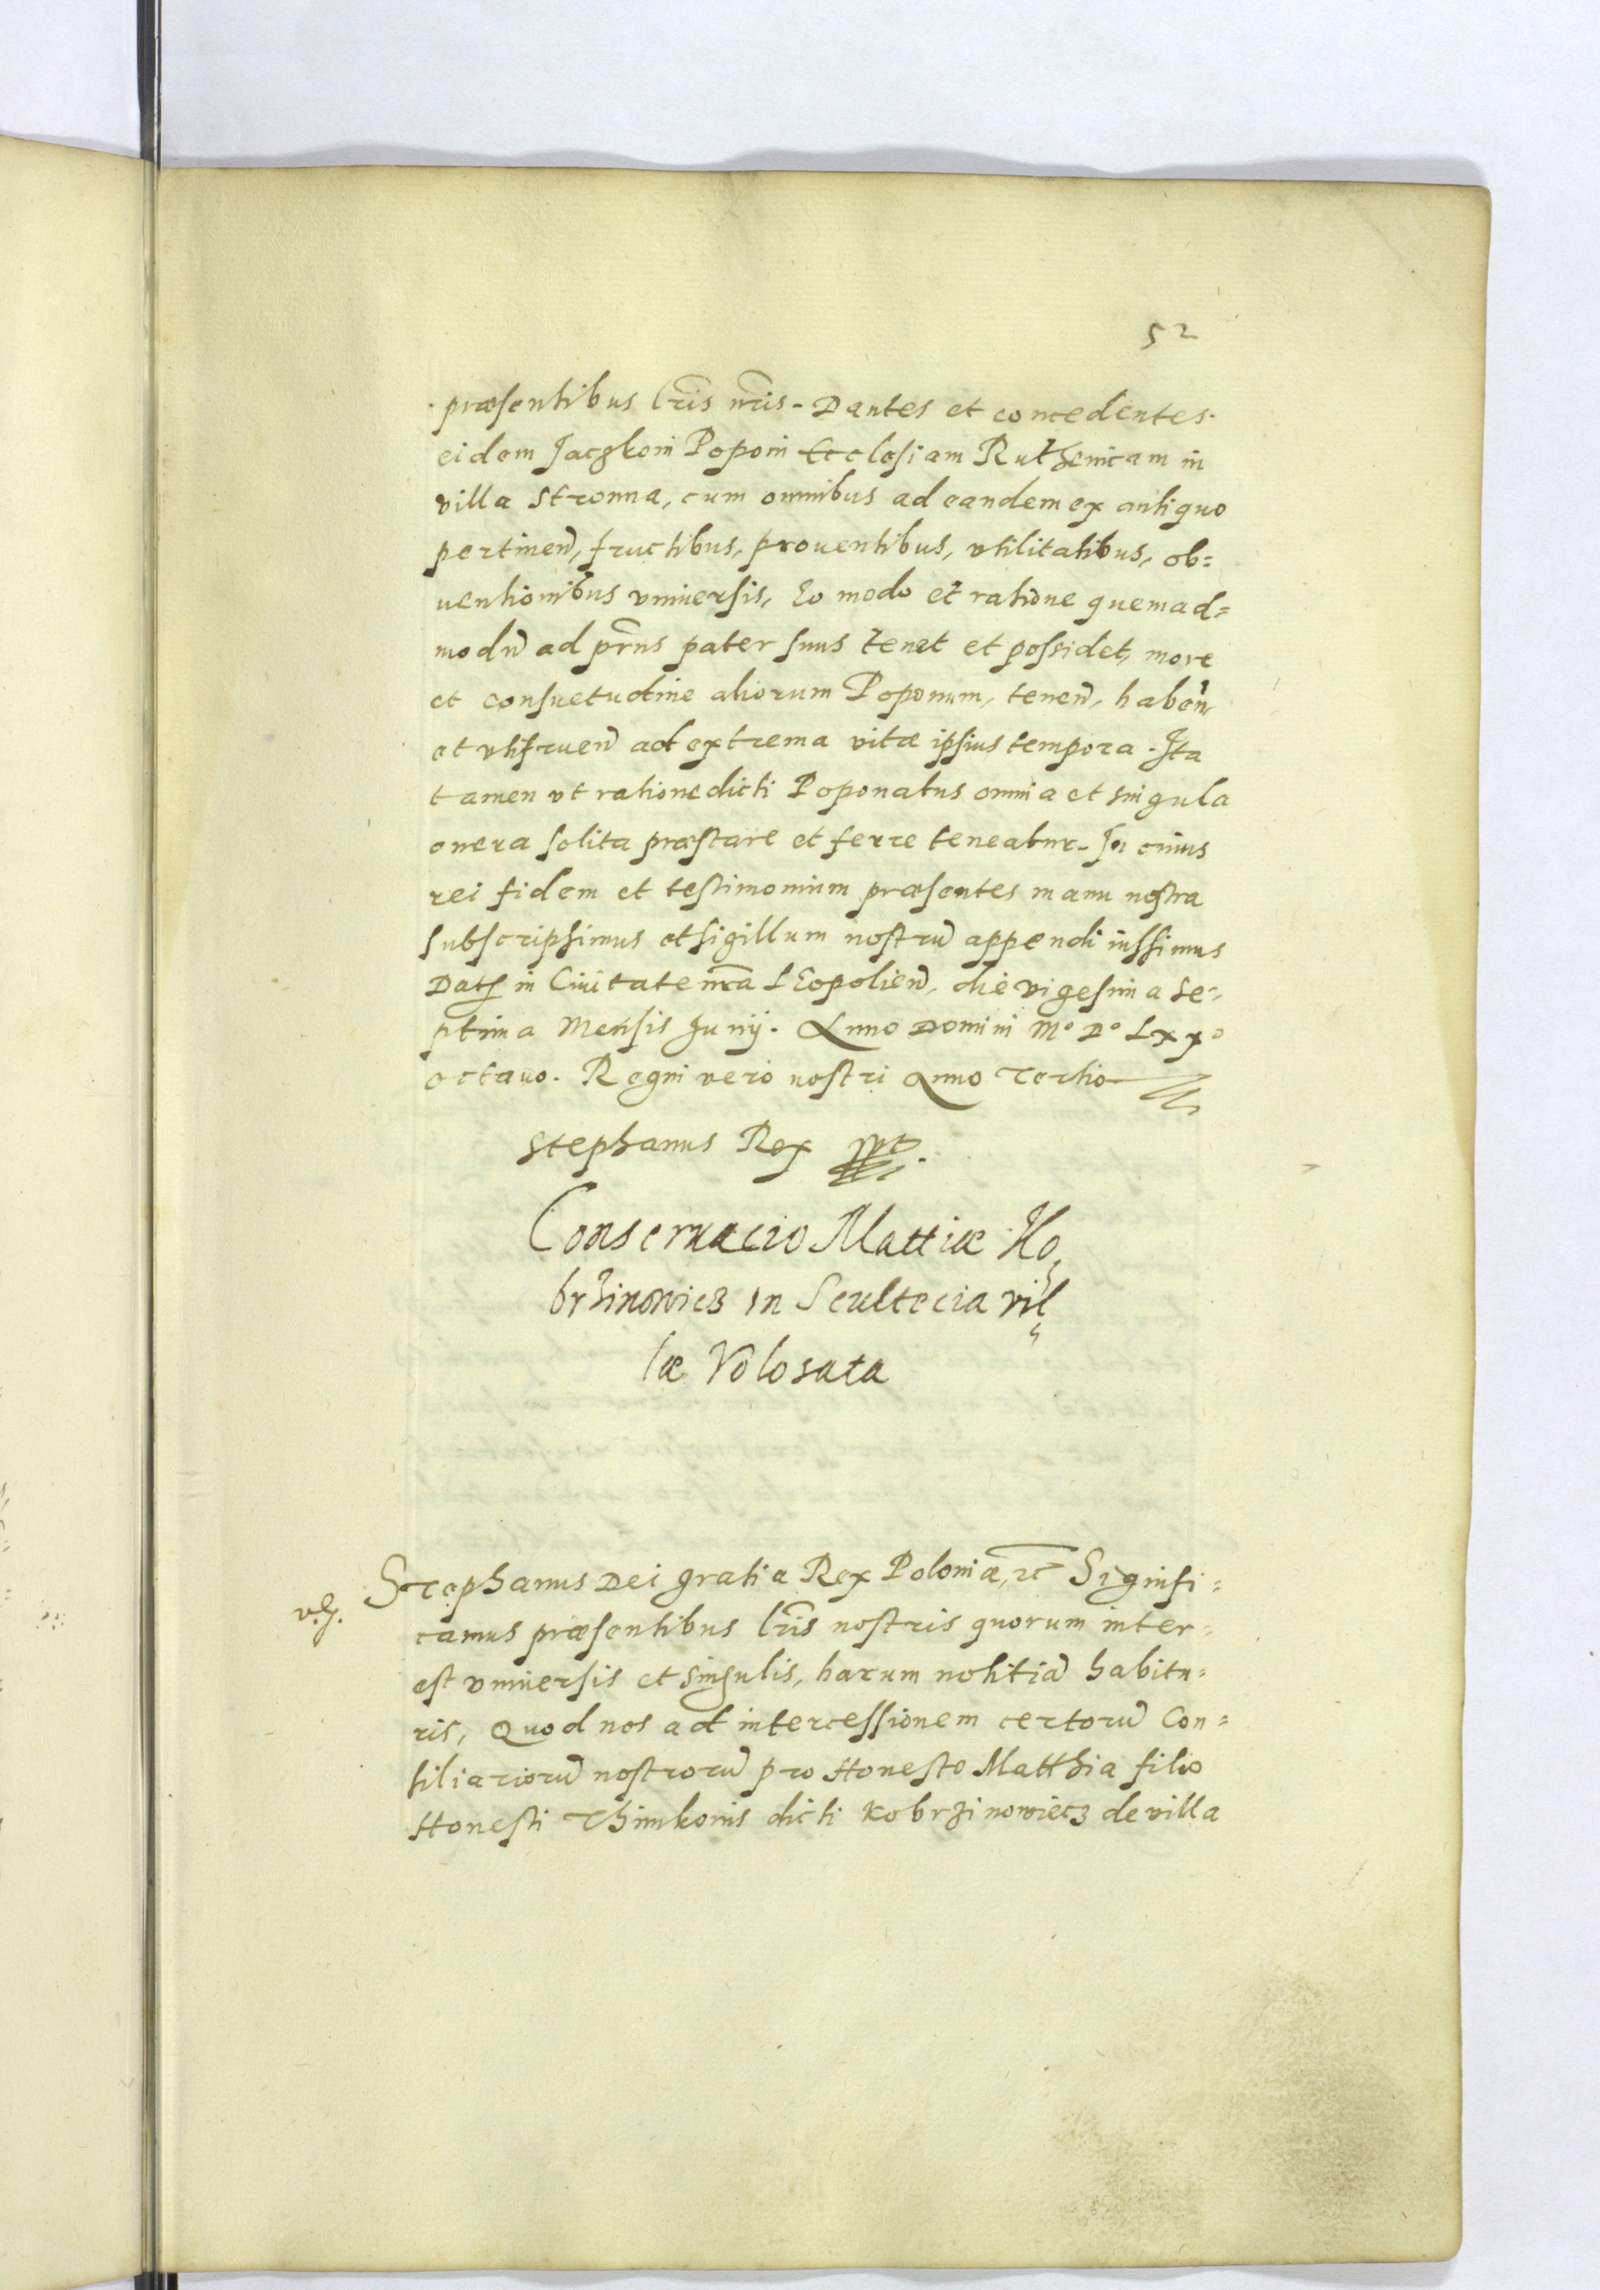 52
præsentibus lris nris. Dantes et concedentes
eidem Jaczkoni Poponi Ecclesiam Ruthenicam in
villa Stronna, cum omnibus ad eandem ex antiquo
pertinen, fructibus, prouentibus, vtilitatibus, ob=
uentionibus vniuersis, Eo modo et ratione quemad=
modu ad prns pater suus tenet et possidet, more
et consuetudine aliorum Poponum, tenen, haben,
et vtifruen ad extrema vitæ ipsius tempora. Ita
tamen vt ratione dicti Poponatus omnia et singula
onera solita præstare et ferre teneatur. In cuius
rei fidem et testimonium præsentes manu nostra
subscripsimus et sigillum nostru appendi iussimus
Dat in Ciuitate nra LEopolien, die vigesima se=
ptima Mensis Junij. Anno Domini M° D° Lxx°
octauo. Regni vero nostri Anno Tertio
Stephanus Rex
Conseruacio Mattiæ Ko
brzinowicz in Scultecia vil
læ Volosata
Stephanus Dei gratia Rex Poloniæ, etc Signifi=
camus præsentibus lris nostris quorum inter=
est vniuersis et singulis, harum notitia habitu=
ris, Quod nos ad intercessionem certoru Con=
siliarioru nostroru pro Honesto Matthia filio
Honesti Thimkonis dicti Kobrzinowiecz de villa